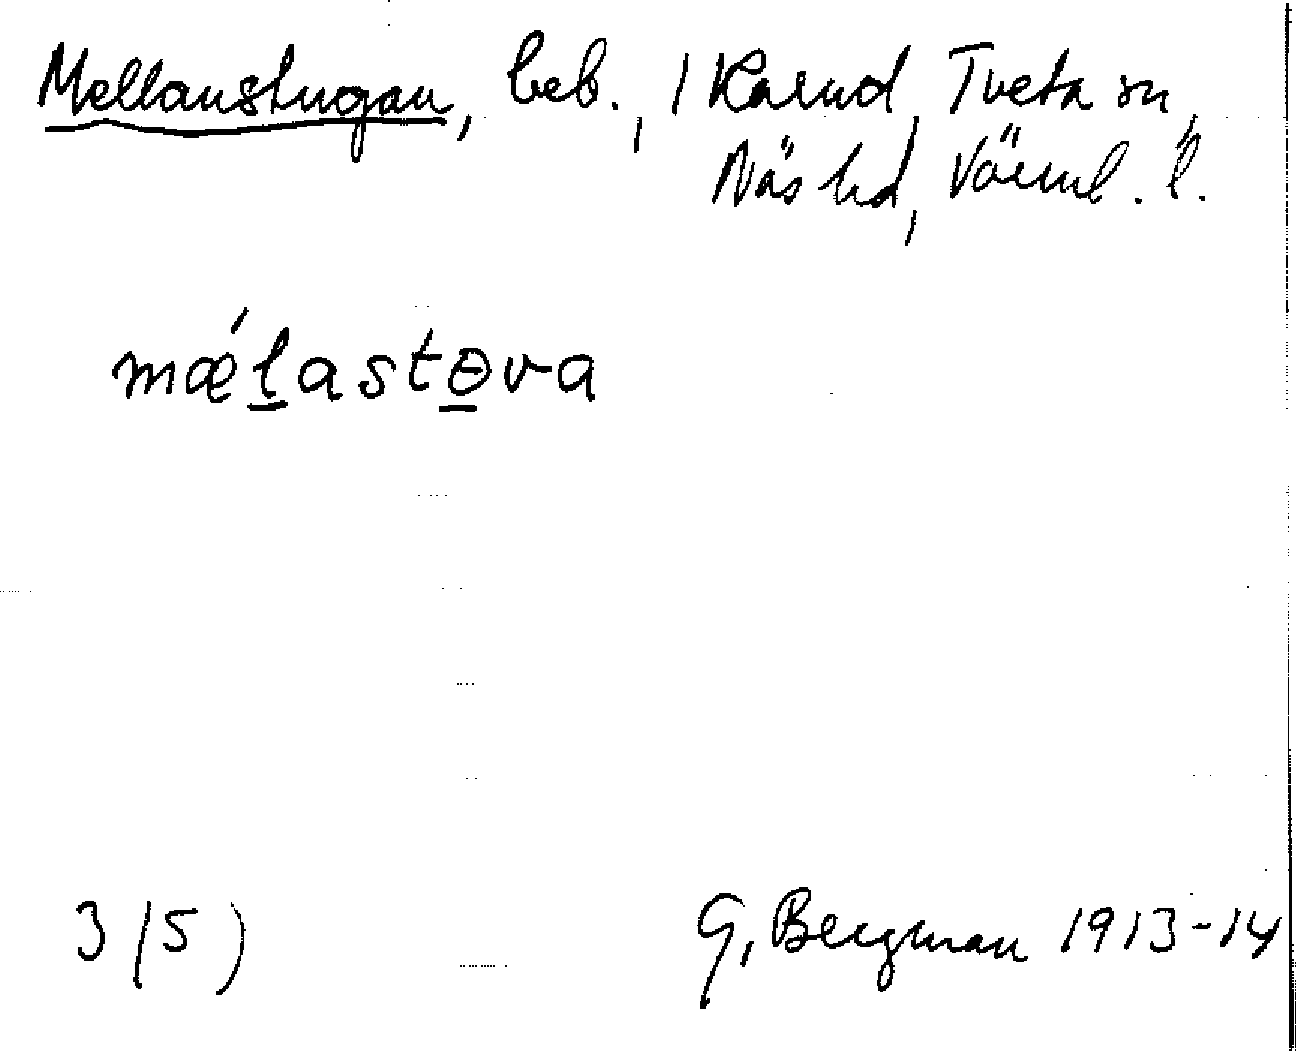 Mellanstugan, beb., 1 Karud, Tveta sn,
Näs hd, Värml. l.
mǽl̲astɵ̲va
3 (5) G. Bergman 1913-14